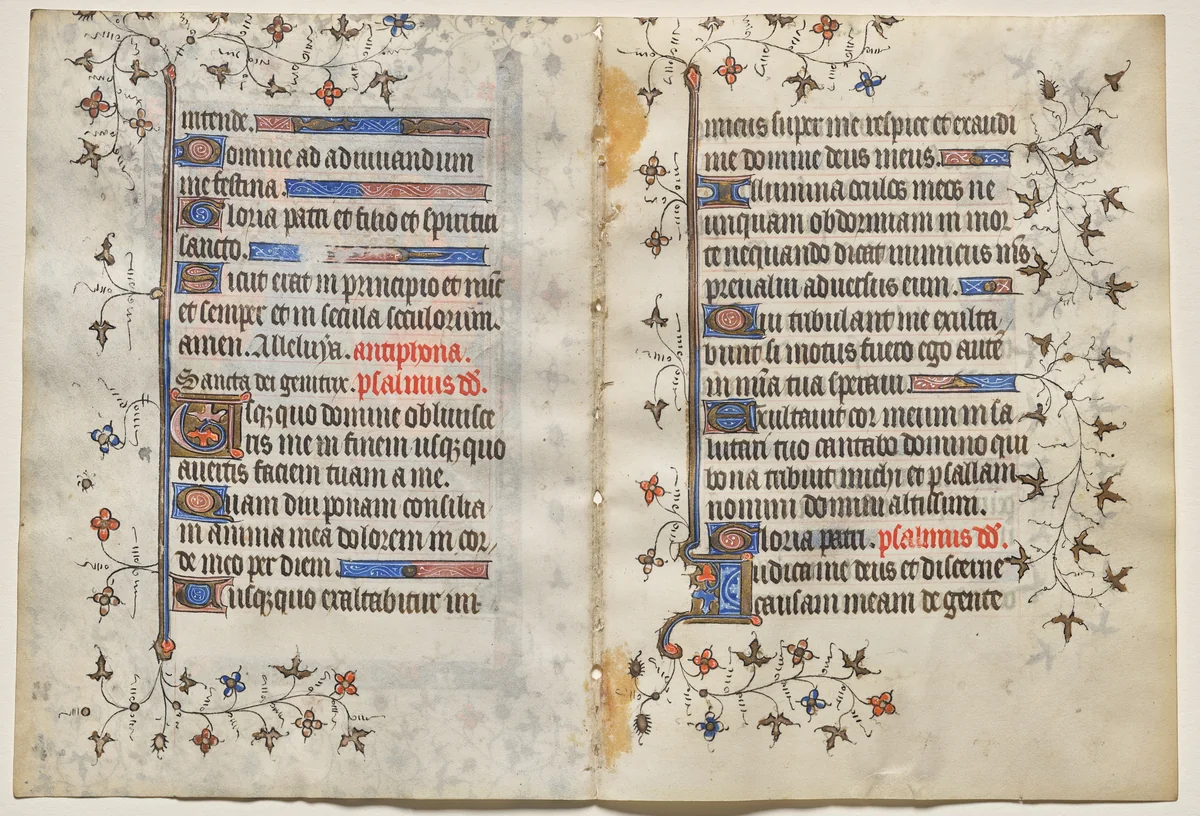 intende.
Domine ad adiuuandum
me festina.
Gloria patri et filio et spiritui
sancto.
Sicut erat in principio et nūc
et semper et in secula seculorum.
amen. Alleluya. antiphona.
Sancta dei genitrix. psalmus dd̄.
Usq̄ quo domine obliuisce
ris me in finem usq̄ quo
auertis faciem tuam a me.
Quam diu ponam consilia
in anima mea dolorem in cor
de meo per diem.
Usq̄ quo exaltabitur ini
micus super me respice et exaudi
me domine deus meus.
Illumina oculos meos ne
unquam obdormiam in mor
te nequando dicat inimicus m̄s
preualui aduersus eum.
Qui tribulant me exulta
bunt si motus fuero ego autē
in mīa tua speraui.
Exultauit cor meum in sa
lutari tuo cantabo domino qui
bona tribuit michi et psallam
nomini domini altissimi.
Gloria patri. psalmus dd̄.
Iudica me deus et discerne
causam meam de gente